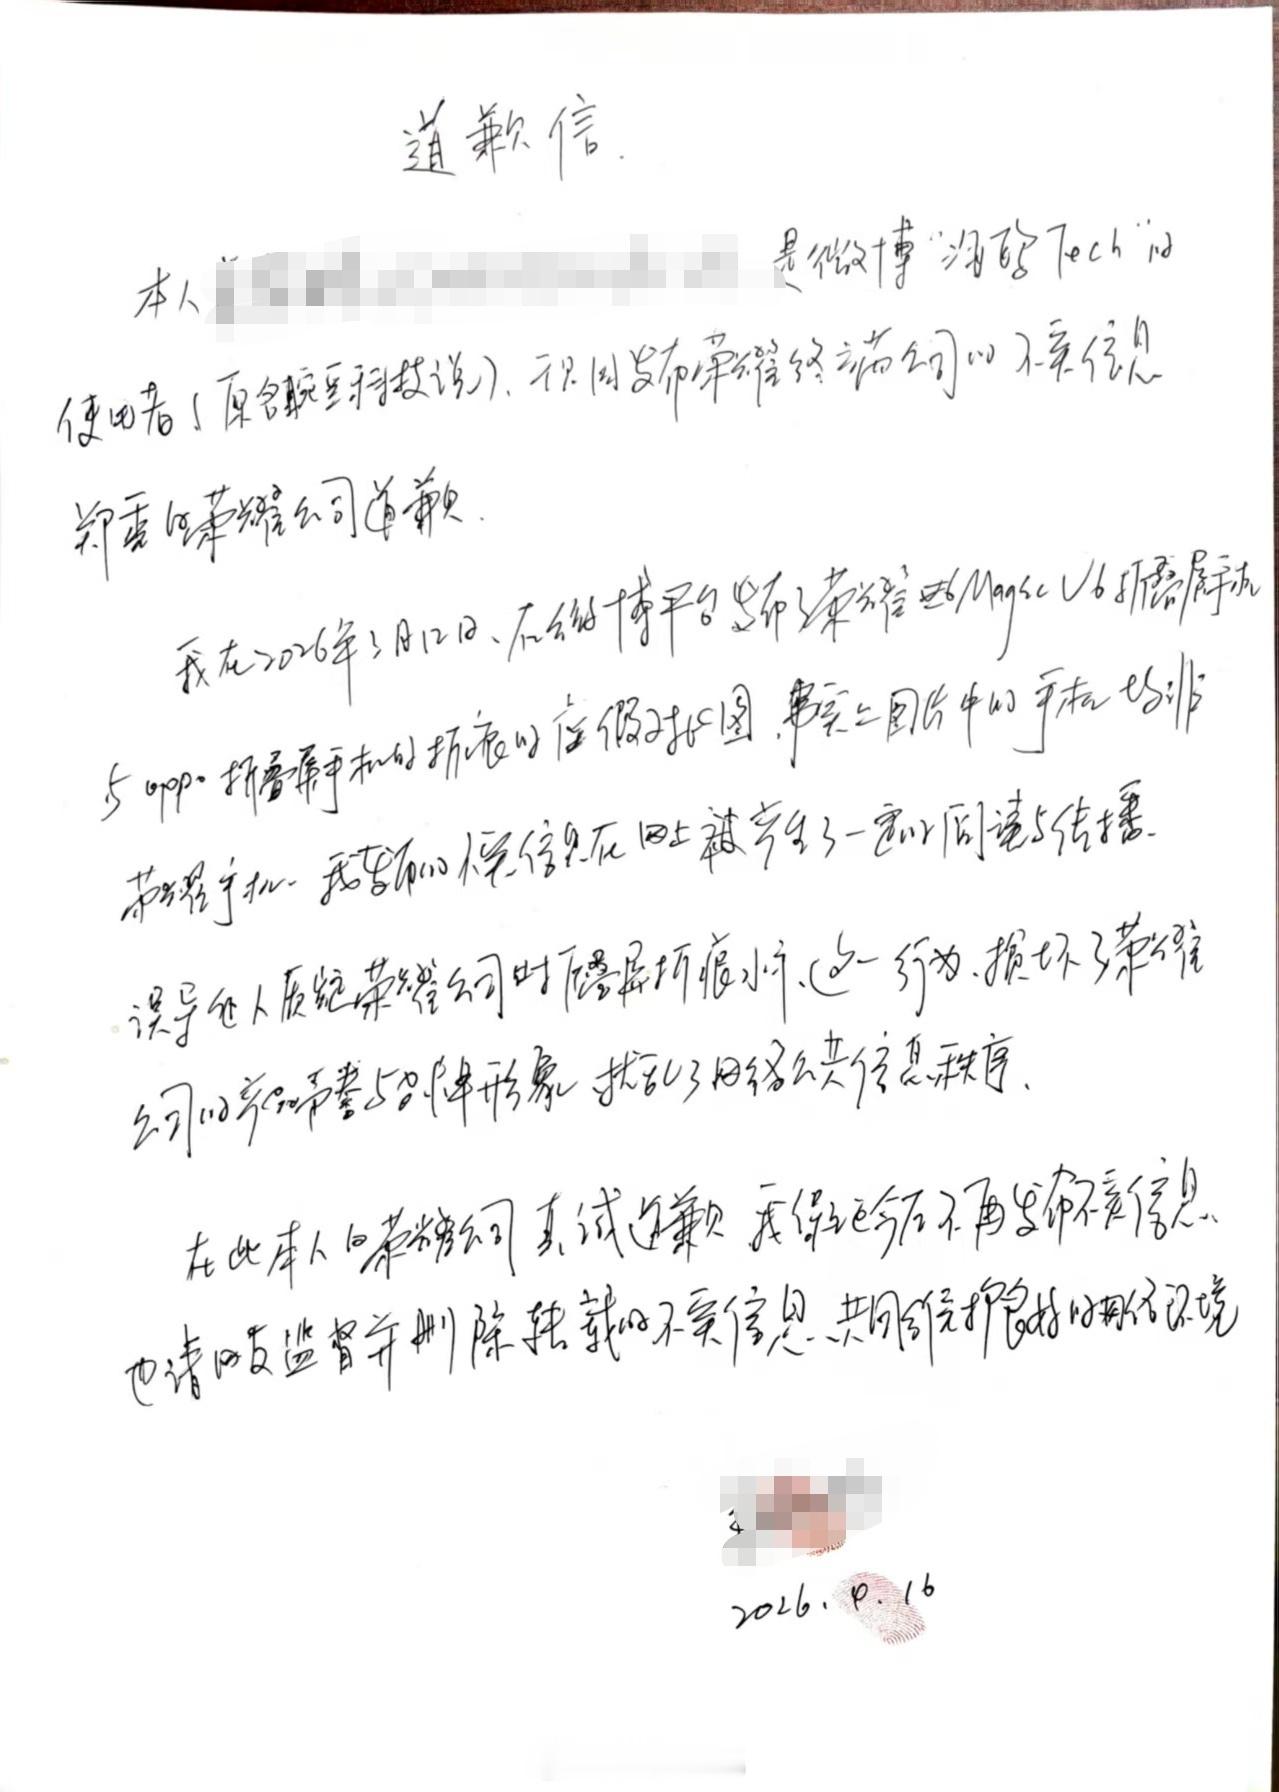 道歉信.
本人 是微博“海酷Tech”的
使用者(原名豌豆科技说)、现因发布荣耀终端公司的不实信息
郑重向荣耀公司道歉.
我在2026年3月12日、在微博平台发布了荣耀 Magic V6折叠屏手机
与oppo折叠屏手机的折痕的虚假对比图,事实上图片中的手机均非
荣耀手机. 我发布的不实信息在网上被产生了一定的阅读与传播.
误导他人质疑荣耀公司 折叠屏折痕水平、这一行为、损坏了荣耀
公司的产品声誉与品牌形象 扰乱了网络公共信息秩序.
在此本人向荣耀公司真诚道歉 我保证今后不再发布不实信息、
也请网友监督并删除转载的不实信息 共同维护良好的网络环境
2026.4.16